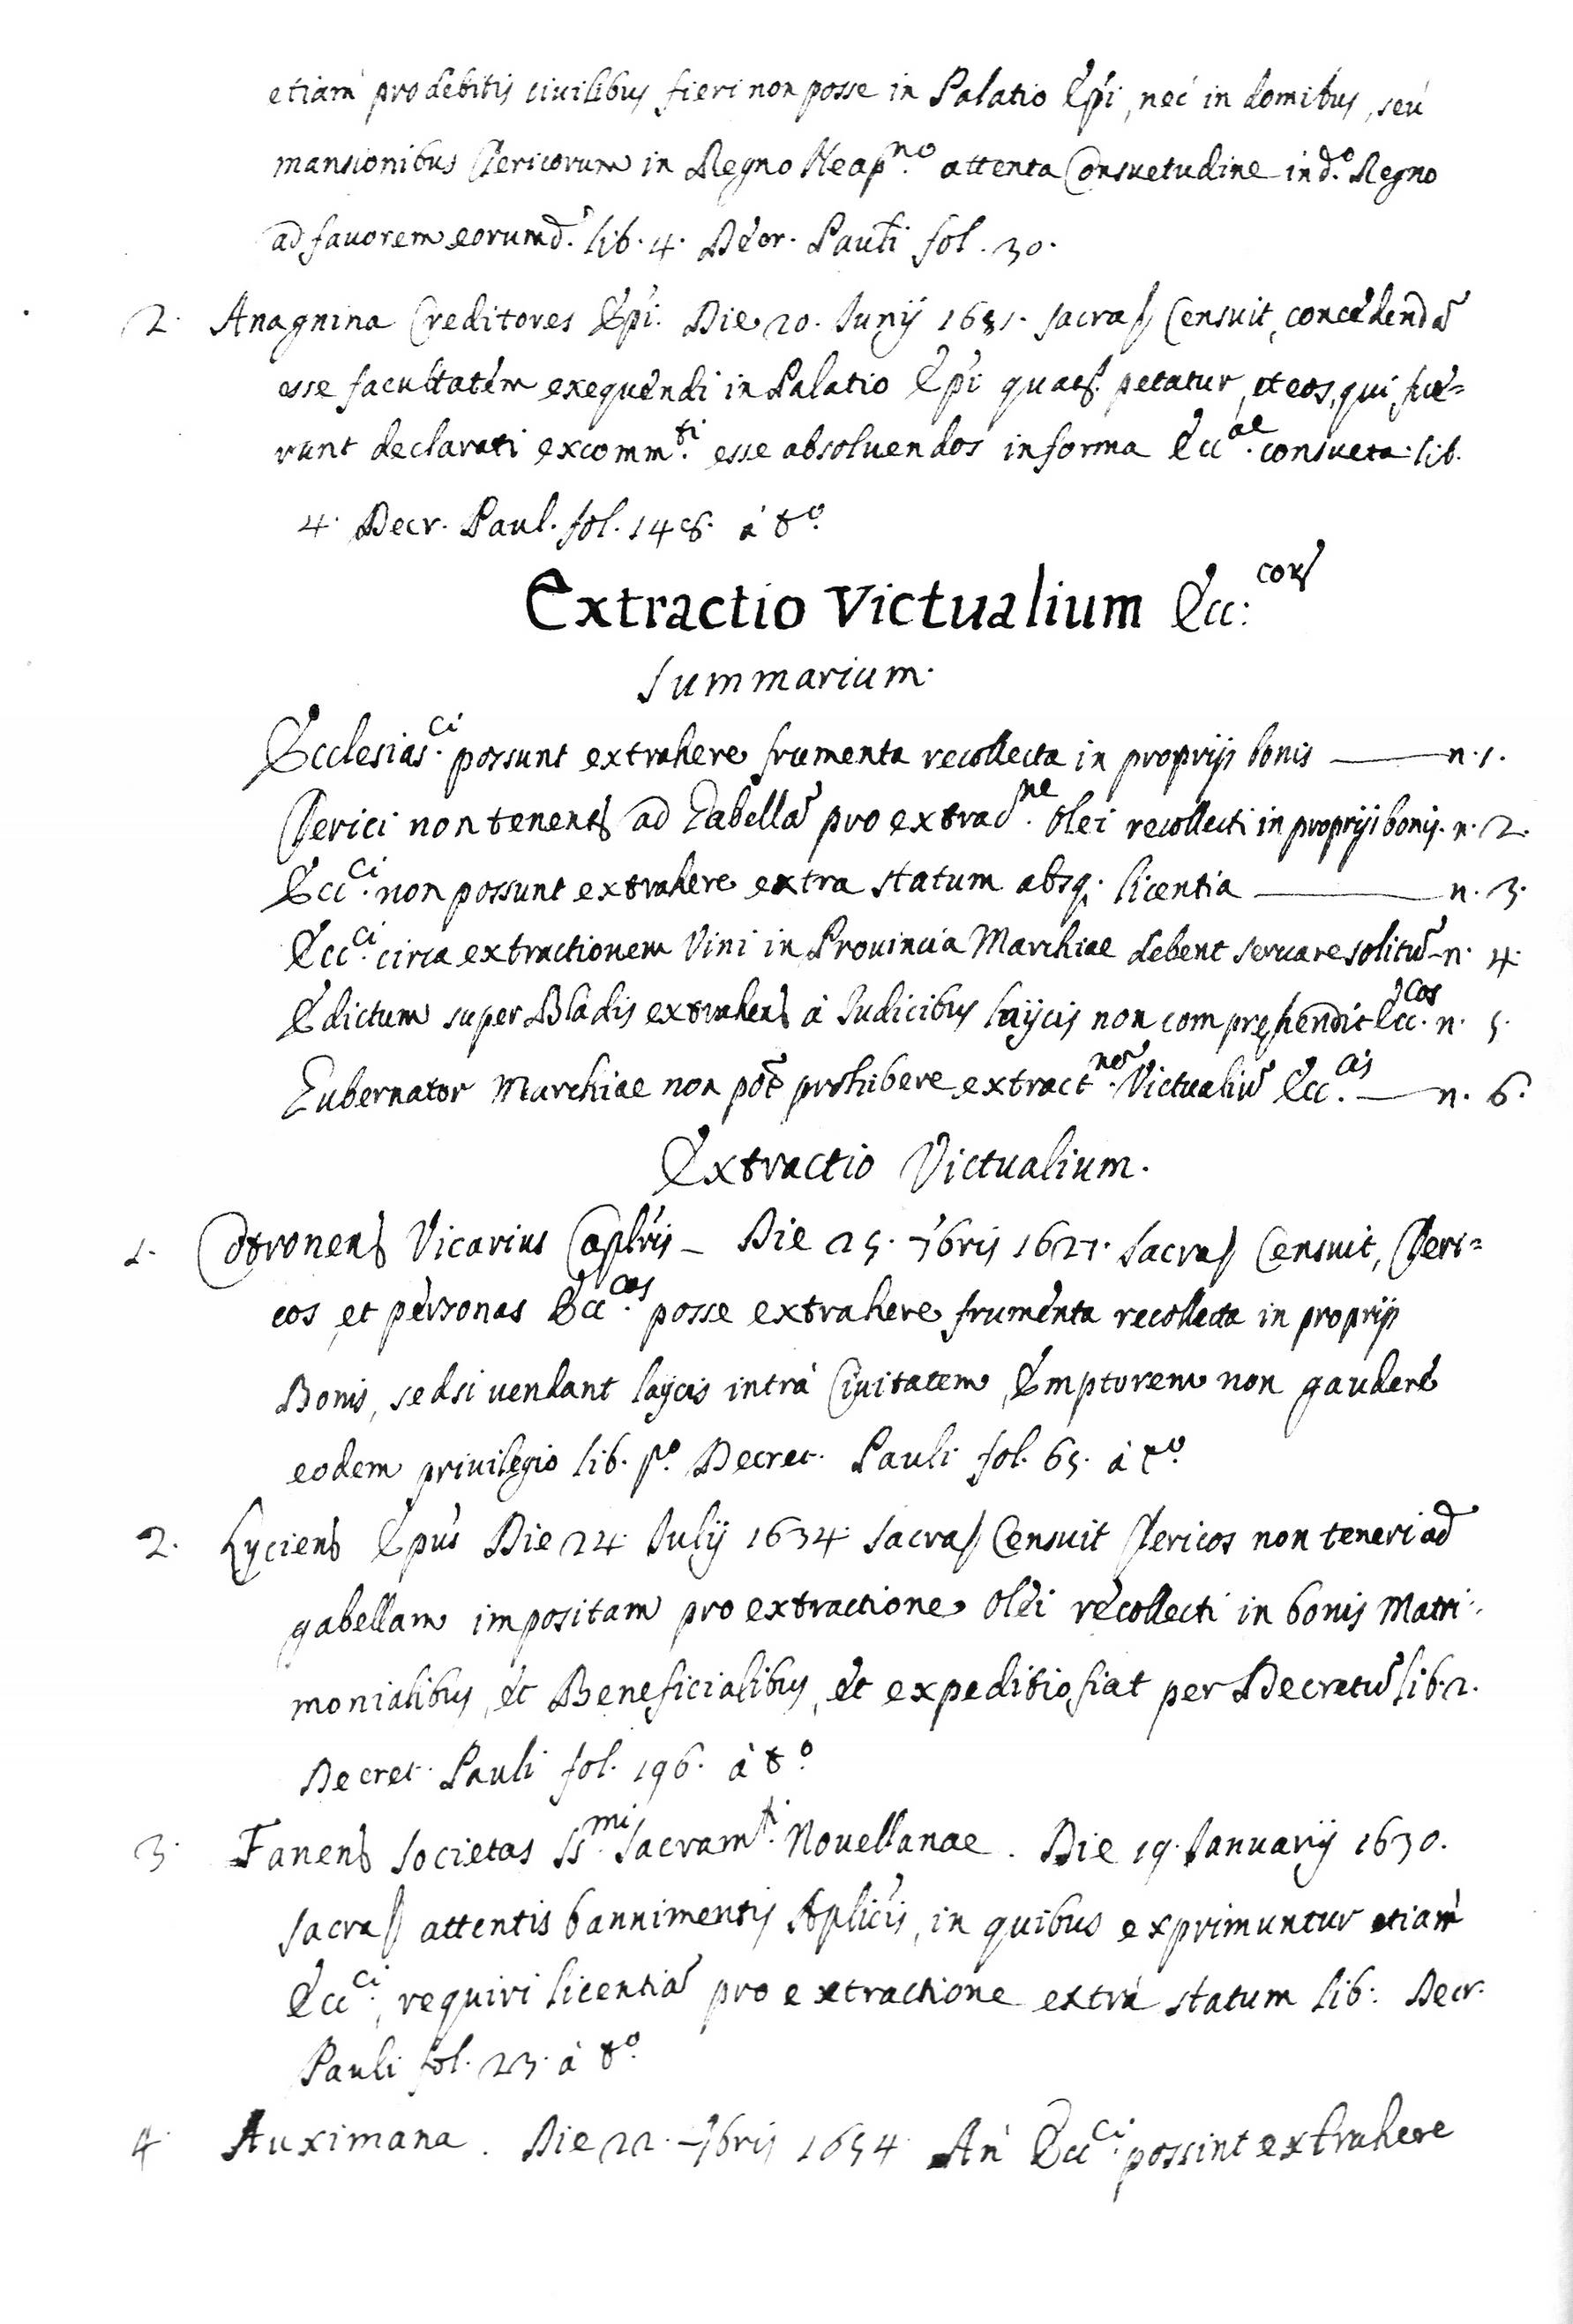 etiam pro debitis ciuilibus fieri non posse in Palatio Ep̃i, nec in domibus, seu
mansionibus Clericorum in Regno Neap.no attenta Consuetudine in d.o Regno
ad fauorem eorumd. lib. 4. Decr. Pauli fol. 30.
2. Anagnina Creditores Ep̃i. Die 20. Junij 1651. sacra Censuit, concedendã
esse facultatem exequendi in Palatio Ep̃i quat. petatur, et eos, qui fue=
runt declarati excomm.ti esse absoluendos in forma Ecc.ae consueta. lib.
4. Decr. Paul. fol. 148. à t.o
Extractio Victualium Ecc.cor
Summarium.
Ecclesias.ci possunt extrahere frumenta recollecta in proprijs bonis — n. 1.
Clerici non tenent ad Gabellã pro extract.ne Olei recollecti in proprijs bonis. n. 2.
Ecc.ci non possunt extrahere extra statum absq. licentia — n. 3.
Ecc.ci circa extractionem Vini in Prouincia Marchiae debent seruare solitũ — n. 4.
Edictum super Bladis extrahen à Judicibus laycis non comprehendit Ecc.cos n. 5.
Gubernator Marchiae non pōt prohibere extract.nes Victualiũ Ecc.cis — n. 6.
Extractio Victualium.
1. Cotronen Vicarius Caplris — Die 25. 7bris 1621. sacra Censuit, Cleri=
cos et personas Ecc.cas posse extrahere frumenta recollecta in proprijs
Bonis, sed si uendant laycis intra Ciuitatem, Emptorem non gaudere
eodem priuilegio lib. p.o Decret. Pauli fol. 65. à t.o
2. Lycien Epus Die 24. Julij 1634. sacra Censuit Clericos non teneri ad
gabellam impositam pro extractione Olei recollecti in bonis Matri=
monialibus, et Beneficialibus, et expeditio fiat per Decretũ lib. 2.
Decret. Pauli fol. 196. à t.o
3. Fanen Societas SS.mi Sacram.ti Nouellanae. Die 19. Januarij 1630.
sacra attentis bannimentis Aplicis, in quibus exprimuntur etiam
Ecc.ci, requiri licentiã pro extractione extra statum lib. Decr.
Pauli fol. 23. à t.o
4. Auximana. Die 22. 7bris 1654. An Ecc.ci possint extrahere